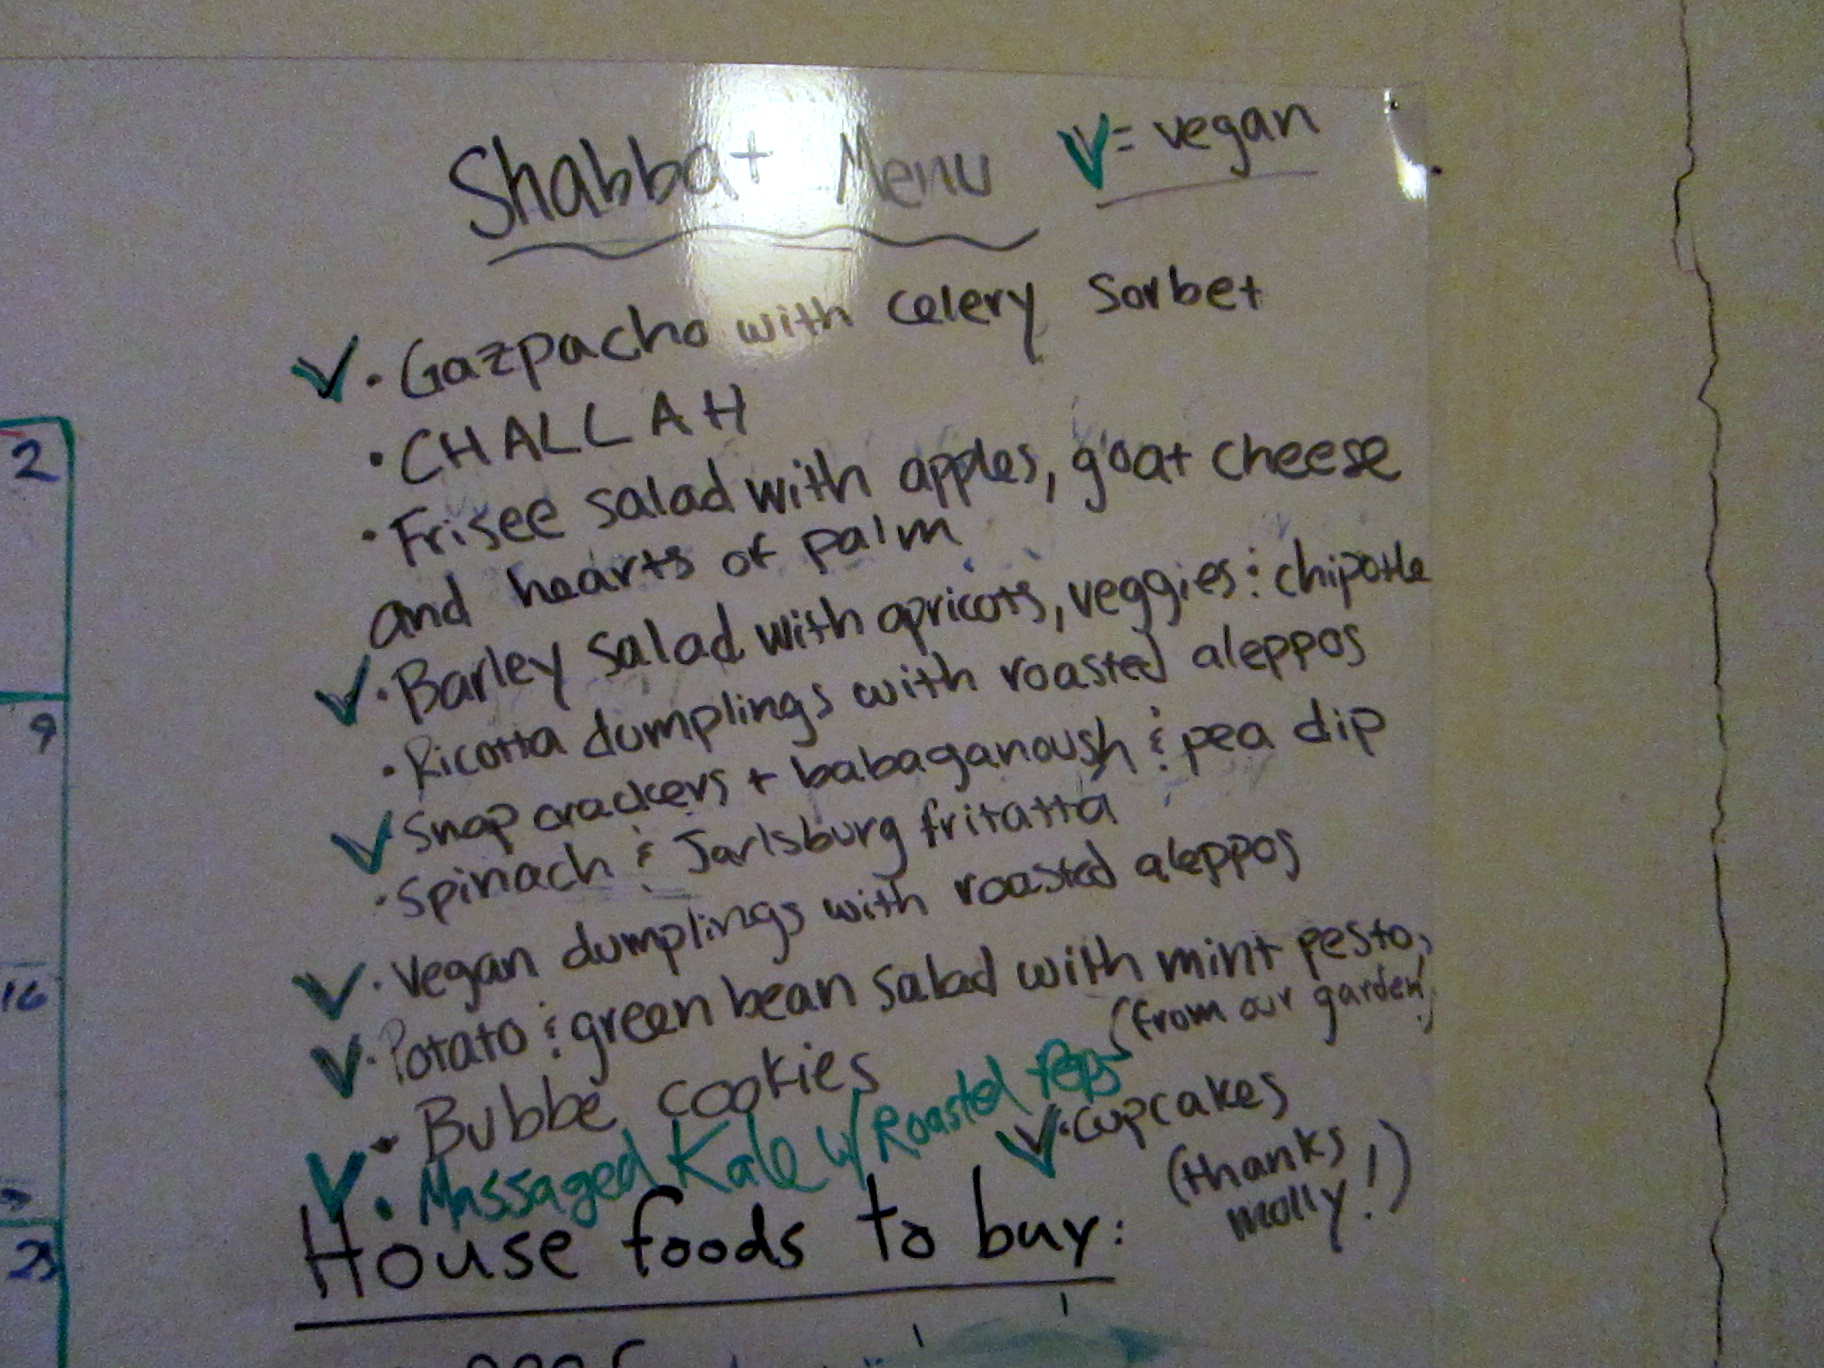 Shabbat Menu V = vegan
V • Gazpacho with celery sorbet
• CHALLAH
• Frisee salad with apples, goat cheese
and hearts of palm
V • Barley salad with apricots, veggies & chipotle
• Ricotta dumplings with roasted aleppos
V • Snap crackers + babaganoush & pea dip
• Spinach & Jarlsburg fritatta
V • Vegan dumplings with roasted aleppos
V • Potato & green bean salad with mint pesto,
(from our garden!)
• Bubbe cookies
V • Massaged Kale w/ Roasted Peps
V • cupcakes
(thanks
molly!)
House foods to buy:
2
9
16